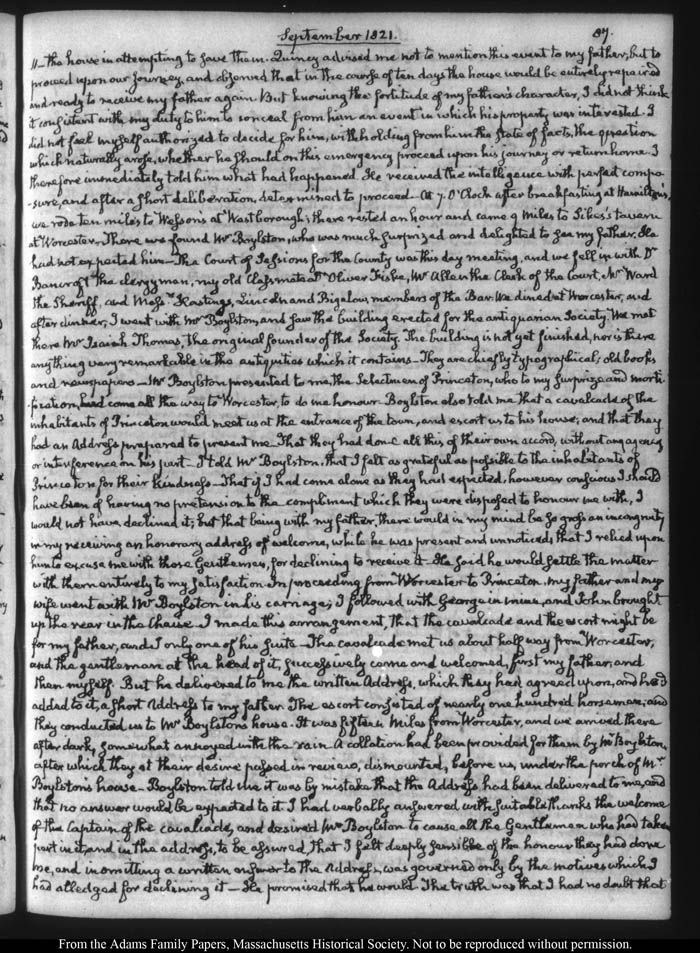 September 1821. 87.
11— the house in attempting to save them. Quincy advised me not to mention this event to my father, but to
proceed upon our journey, and observed that in the course of ten days the house would be entirely repaired
and ready to receive my father again. But knowing the fortitude of my father's character, I did not think
it consistent with my duty to him to conceal from him an event in which his property was interested. I
did not feel myself authorized to decide for him, withholding from him the state of facts, the question
which naturally arose, whether he should on this emergency proceed upon his journey or return home. I
therefore immediately told him what had happened. He received the intelligence with perfect compo
-sure, and after a short deliberation, determined to proceed— At 7. O'Clock after breakfasting at Hamilton's,
we rode ten miles to Wessons at Westborough; there rested an hour and came 9 Miles to Sikes's tavern
at Worcester. There we found Mr Boylston, who was much surprized and delighted to see my father. He
had not expected him— The Court of Sessions for the County was this day meeting, and we fell in with Dr
Bancroft the clergyman, my old Classmate Dr Oliver Fiske, Mr Allen the Clerk of the Court, Mr Ward
the Sheriff, and Messrs Hastings, Lincoln and Bigelow, members of the Bar. We dined at Worcester, and
after dinner, I went with Mr Boylston, and saw the building erected for the antiquarian Society. We met
there Mr Isaiah Thomas, the original founder of the Society. The building is not yet finished, nor is there
anything very remarkable in the antiquities which it contains— They are chiefly typographical; old books
and newspapers— Mr Boylston presented to me the Selectmen of Princeton, who to my surprize and morti
-fication, had come all the way to Worcester, to do me honour. Boylston also told me that a cavalcade of the
inhabitants of Princeton would meet us at the entrance of the town, and escort us to his house; and that they
had an Address prepared to present me— That they had done all this of their own accord, without any agency
or interference on his part— I told Mr Boylston, that I felt as grateful as possible to the inhabitants of
Princeton for their kindness— That if I had come alone as they had expected, however conscious I should
have been of having no pretension to the compliment which they were disposed to honour me with, I
would not have declined it; but that being with my father, there would in my mind be so gross an incongruity
in my receiving an honorary address of welcome, while he was present and unnoticed, that I relied upon
him to excuse me with those Gentlemen, for declining to receive it— He said he would settle the matter
with them entirely to my satisfaction. In proceeding from Worcester to Princeton, my father and my
wife went with Mr Boylston in his carriage; I followed with George in mine, and John brought
up the rear in the Chaise. I made this arrangement, that the cavalcade and the escort might be
for my father, and I only one of his suite— The cavalcade met us about half way from Worcester,
and the gentleman at the head of it, successively came and welcomed, first my father, and
then myself. But he delivered to me the written Address, which they had agreed upon, and had
added to it, a short Address to my father. The escort consisted of nearly one hundred horsemen, and
they conducted us to Mr Boylston's house. It was fifteen Miles from Worcester, and we arrived there
after dark, somewhat annoyed with the rain. A collation had been provided for them by Mr Boylston,
after which they at their desire passed in review, dismounted, before us, under the porch of Mr
Boylstons house— Boylston told me it was by mistake that the Address had been delivered to me, and
that no answer would be expected to it. I had verbally answered with suitable thanks the welcome
of the Captain of the cavalcade, and desired Mr Boylston to cause all the Gentlemen who had taken
part in it, and in the address, to be assured that I felt deeply sensible of the honour they had done
me, and in omitting a written answer to the Address, was governed only by the motives which I
had alledged for declining it— He promised that he would. The truth was that I had no doubt that
From the Adams Family Papers, Massachusetts Historical Society. Not to be reproduced without permission.